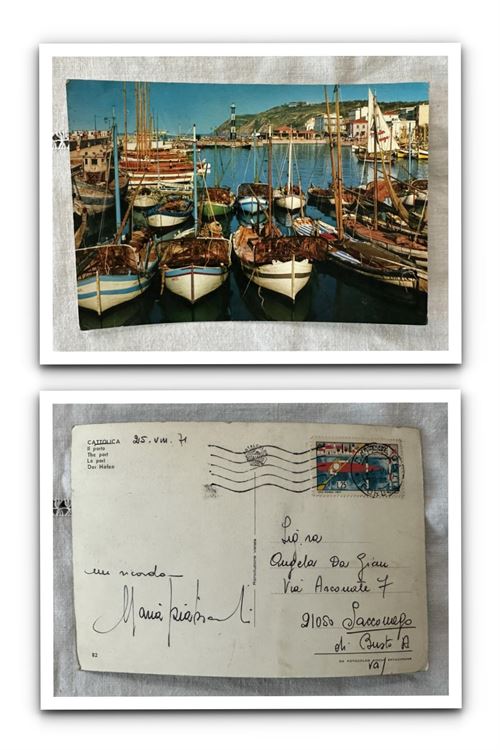 CATTOLICA
Il porto
The port
Le port
Der Hafen
25. VIII. 71
L.25
Riproduzione vietata
Sig.na
Angela Da Gian
Via Arconate 7
21050 Sacconago
di Busto A
Va/
un ricordo
Maria Pia
82